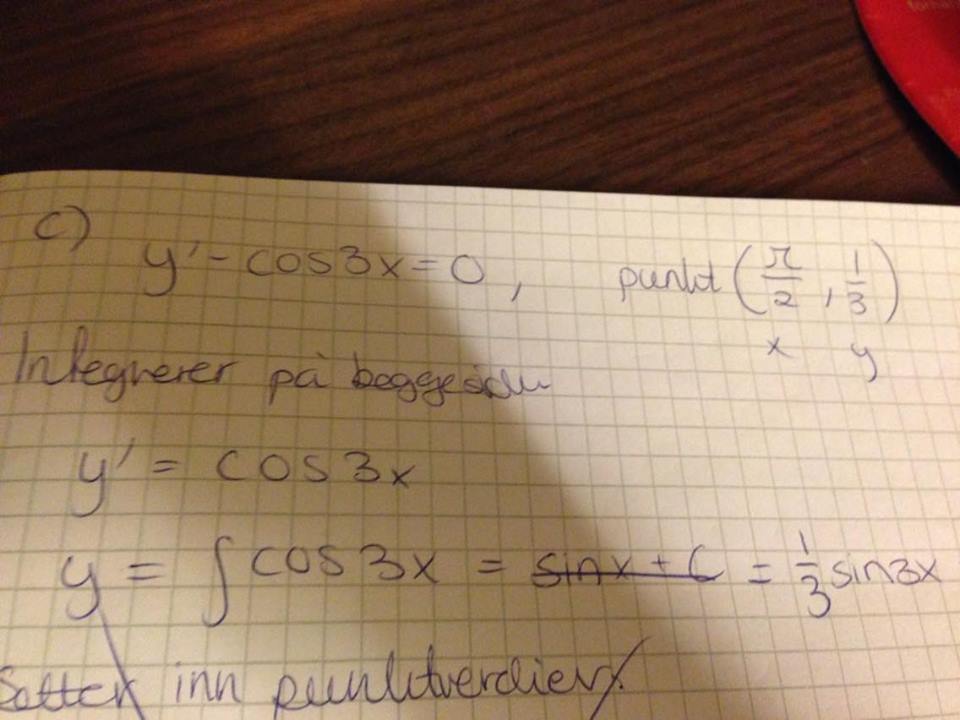 c)
y' - cos3x = 0, punkt (π/2, 1/3)
x y
Integrerer på
y' = cos3x
y = ∫ cos3x = ~~sinx + C~~ = 1/3 sin3x
Setter inn punktverdier